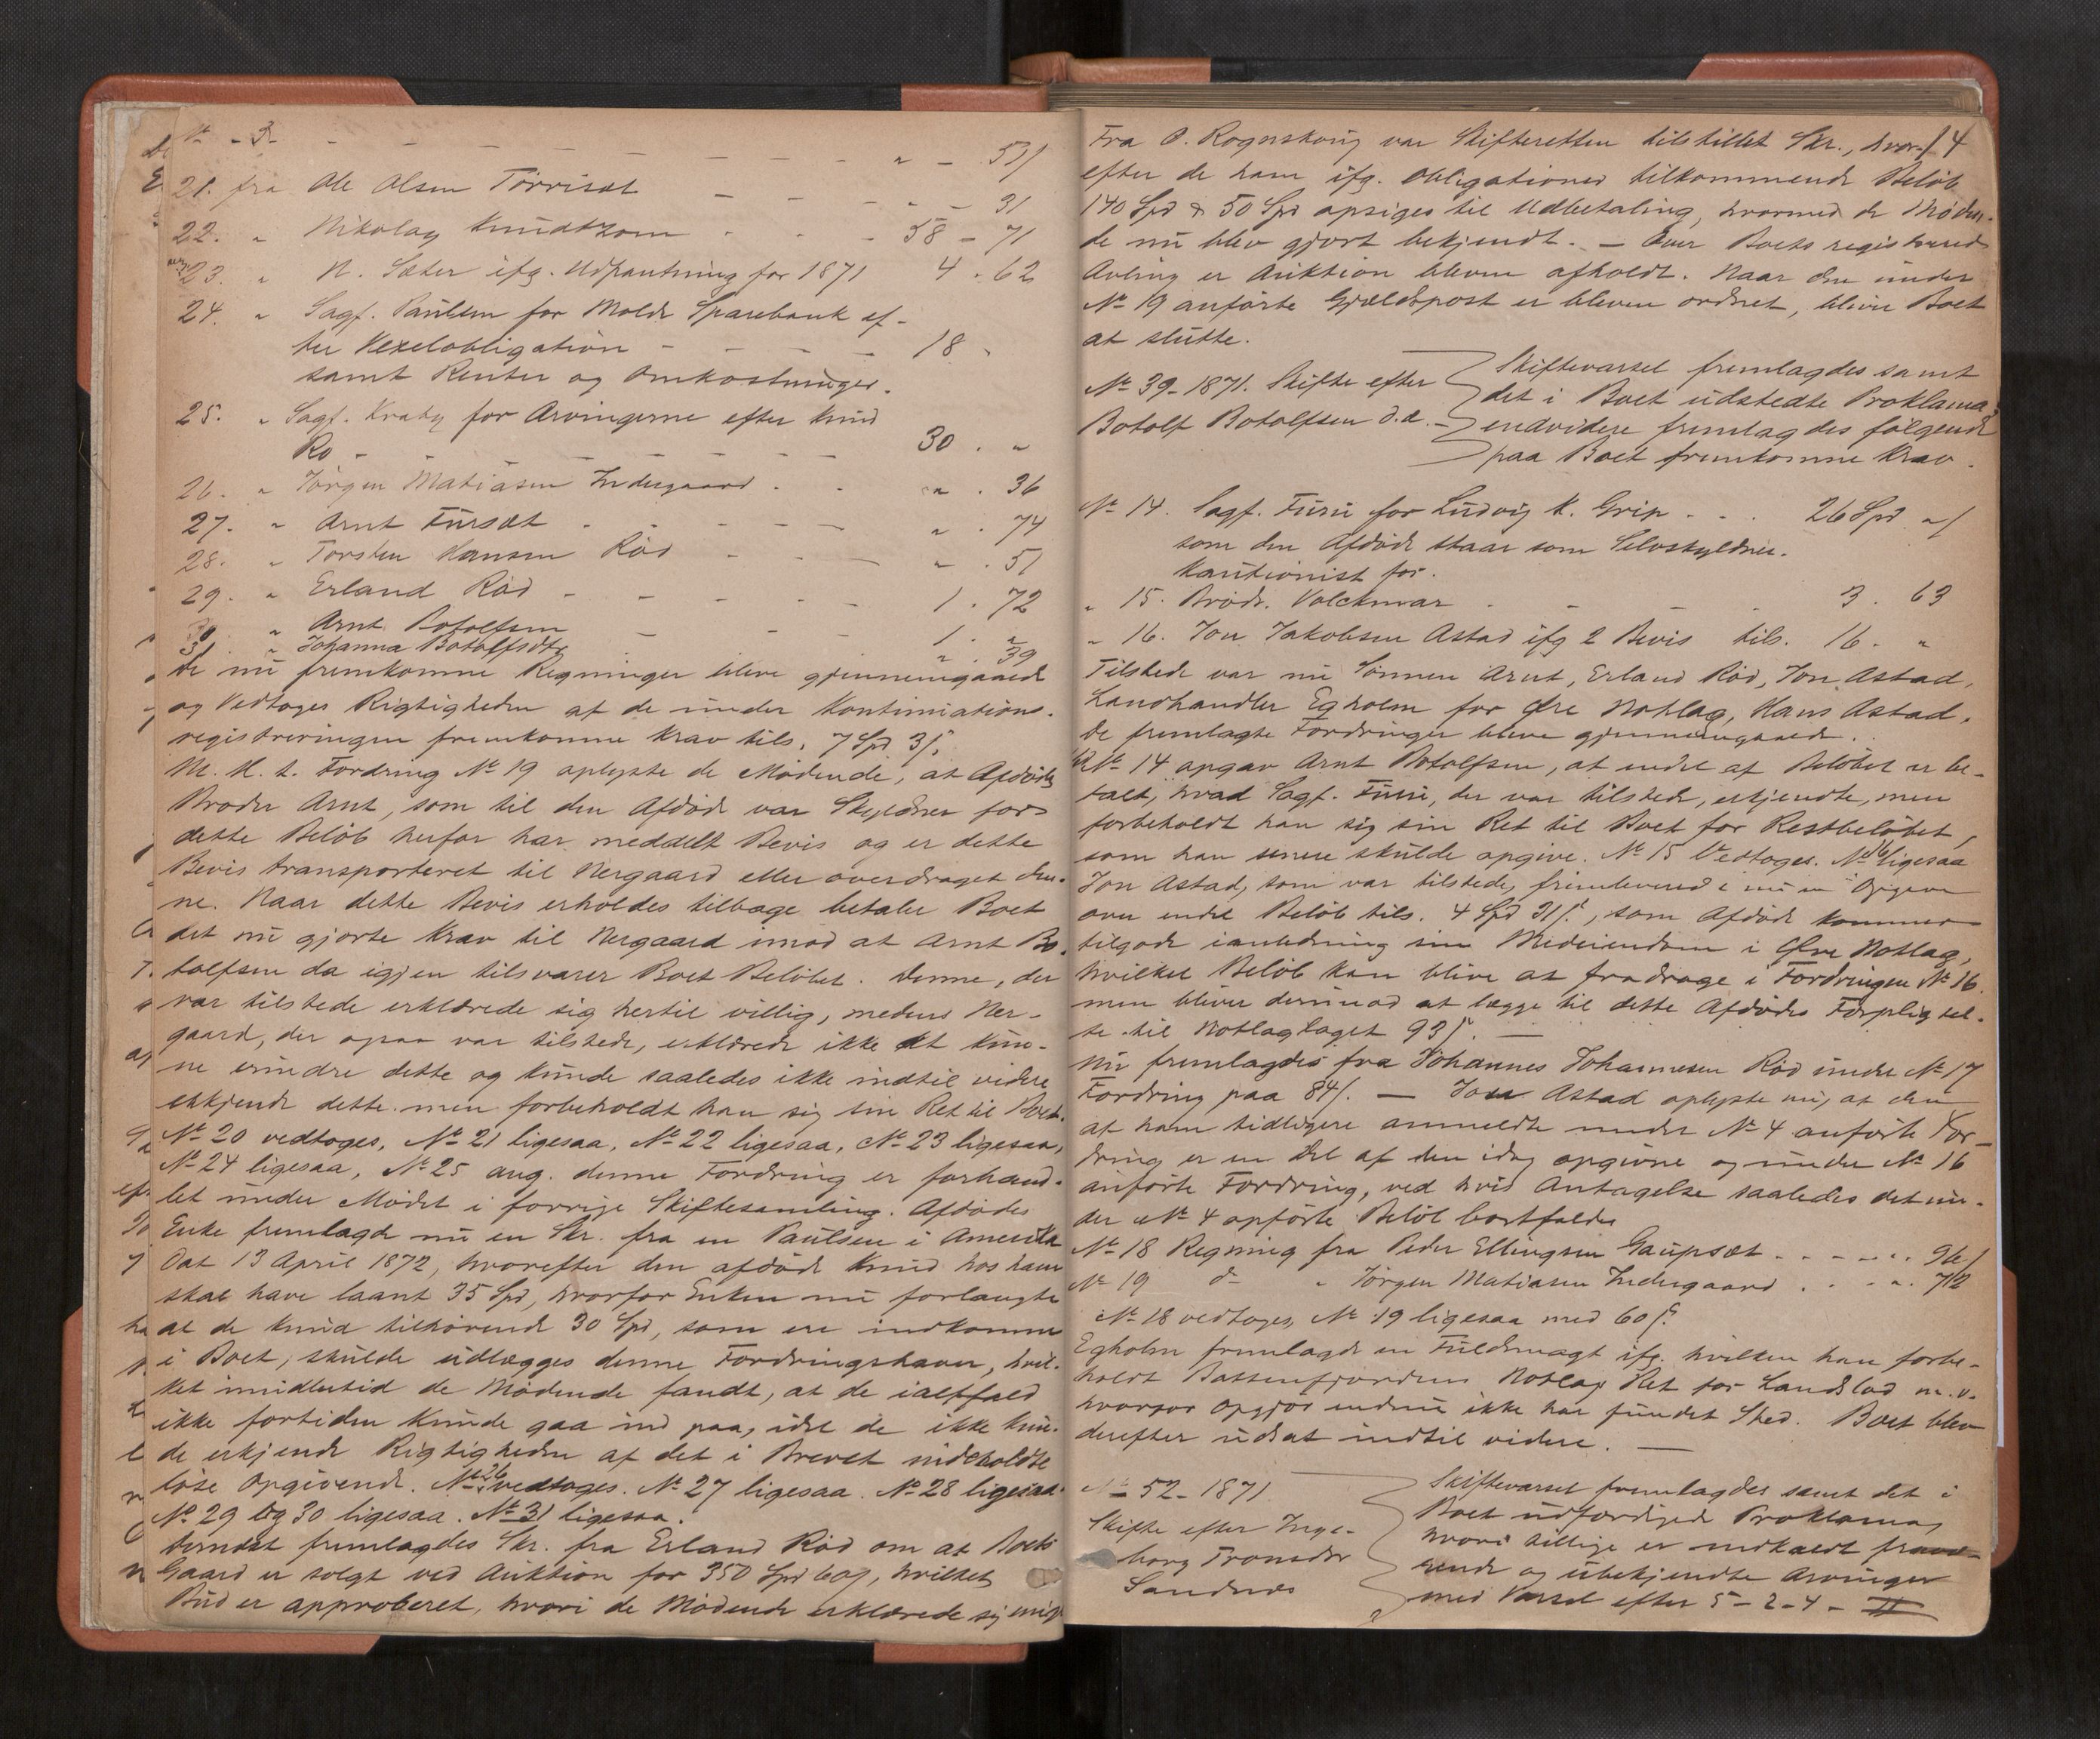 " - 3 - - - - - - - - " - 53/
21. fra Ole Olsen Törrisæt - - - " - 31
22. " Nikolay Knudtzon - - - 58 - 71
23. " N. Sæter ifg. Udpantning for 1871 4 - 62
24. " Sagf. Paulsen for Molde Sparebank ef-
ter Vexelobligation - - - - 18 "
samt Renter og Omkostninger.
25. " Sagf. Kraby for Arvingerne efter Knud
Ro - - - - - - - 30 . "
26. " Jörgen Matiasen Indergaard . . " . 36
27. " Arnt Fursæt - - - - - " . 74
28. " Torsten Hansen Röd - - - " . 51
29. " Erland Röd - - - - - 1 . 72
30. " Arnt Botolfsen - - - 1. "
31. " Johanna Botolfsdtr " . 39
De nu fremkomne Regninger bleve gjennemgaaede
og Vedtoges Rigtigheden af de under Kontinuations-
registreringen fremkomne Krav tils. 7 Spd 3/.
M. H. t. Fordring No 19 oplyste de Mödende, at Afdödes
Broder Arnt, som til den Afdöde var Skyldner for
dette Belöb herfor har meddelt Bevis og er dette
Bevis transporteret til Nergaard eller overdraget den-
ne. Naar dette Bevis erholdes tilbage betaler Boet
det nu gjorte Krav til Nergaard imod at Arnt Bo-
tolfsen da igjen tilsvarer Boet Belöbet. Denne, der
var tilstede erklærede sig hertil villig, medens Ner-
gaard, der ogsaa var tilstede, erklærede ikke at kun-
ne erindre dette og kunde saaledes ikke indtil videre
erkjende dette. men forbeholdt han sig sin Ret til Boet.
No 20 vedtoges, No 21 ligesaa, No 22 ligesaa, No 23 ligesaa,
No 24 ligesaa, No 25 ang. denne Fordring er forhand-
let under Mödet i forrige Skiftesamling. Afdödes
Enke fremlagde nu en Skr. fra en Paulsen i Amerika
Dat 13 April 1872, hvorefter den afdöde Knud hos ham
skal have laant 35 Spd, hvorfor Enken nu forlangte
at de Knud tilhörende 30 Spd, som ere indkomne
i Boet, skulde udlægges denne Fordringshaver, hvil-
ket imidlertid de Mödende fandt, at de ialtfald
ikke fortiden kunde gaa ind paa, idet de ikke kun-
de erkjende Rigtigheden af det i Brevet indeholdte
löse Opgivende. No 26 vedtoges. No 27 ligesaa. No 28 ligesaa.
No 29 og 30 ligesaa. No 31 ligesaa.
Dernæst fremlagdes Skr. fra Erland Röd om at Boets
Gaard er solgt ved Auktion for 350 Spd 60/, hvilket
Bud er approberet, hvori de Mödende erklærede sig enige
14
Fra O. Rognskoug var Skifteretten tilstillet Skr., hvor-
efter de ham ifg. Obligationer tilkommende Belöb
140 Spd & 50 Spd opsiges til Udbetaling, hvormed de Möden-
de nu blev gjort bekjendt. - Over Boets registrerede
Avling er Auktion bleven afholdt. Naar den under
No 19 anförte Gjældspost er bleven ordnet, bliver Boet
at slutte.
No 39-1871. Skifte efter
Botolf Botolfsen
Skiftevarsel fremlagdes samt
det i Boet udstedte Proklama,
endvidere fremlagdes fölgende
paa Boet fremkomne Krav.
No 14. Sagf. Furu for Ludvig K. Grip - . . 26 Spd "/
som den Afdöde staar som Selvskyldner-
kautionist for.
" 15. Brödr. Volckmar - - - . 3 . 63
" 16. Jon Jakobsen Astad ifg 2 Bevis tils. 16 . "
Tilstede var nu Sönnen Arnt, Erland Röd, Jon Astad,
Landhandler Egholm for Öre Notlag, Hans Astad.
De fremlagte Fordringer bleve gjennemgaaede.
No 14 opgav Arnt Botolfsen, at endel af Belöbet er be-
talt, hvad Sagf. Furu, der var tilstede, erkjendte, men
forbeholdt han sig sin Ret til Boet for Restbelöbet,
som han senere skulde opgive. No 15 Vedtoges. No 16 ligesaa
Jon Astad, som var tilstede, fremleverede nu en Opgave
over endel Belöb tils. 4 Spd 31/, som Afdöde kommer
tilgode ianledning sin Medeiendom i Öre Notlag,
hvilket Belöb kan blive at fradrage i Fordringen No 16
men bliver derimod at lægge til dette Afdödes Forpligtel-
se til Notlaglaget 93/. -
Nu fremlagdes fra Johannes Johannesen Röd under No 17
Fordring paa 84/. - Jon Astad oplyste nu, at den
af ham tidligere anmeldte under No 4 anförte For-
dring er en Del af den idag opgivne og under No 16
anförte Fordring, ved hvis Antagelse saaledes det un-
der No 4 opförte Belöb bortfalder
No 18 Regning fra Peder Ellingsen Gaupsæt - - - - - " . 96/
No 19 do " Jörgen Matiasen Indergaard . . . " . 72
No 18 vedtoges, No 19 ligesaa med 60/.
Egholm fremlagde en Fuldmagt ifg. hvilken han forbe-
holdt Battenfjordens Notlag Ret for Landslod m. v.
hvorfor Opgjör endnu ikke har fundet Sted. Boet blev
derefter udsat indtil videre. -
No 52 - 1871
Skifte efter Inge-
borg Tronsdtr
Sandnes
Skiftevarsel fremlagdes samt det i
Boet udfærdigede Proklama,
hvori tillige er indkaldt fravæ-
rende og ubekjendte Arvinger
med Varsel efter 5-2-4-